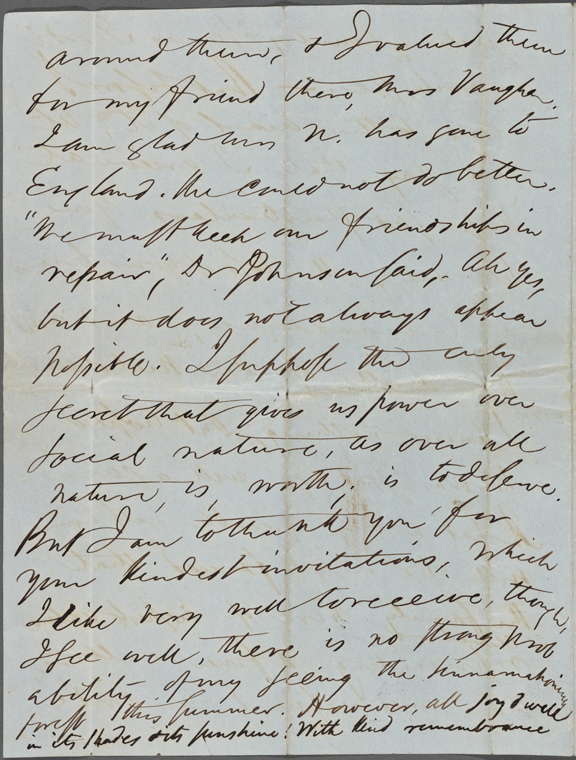 around them, & I valued them
for my friend there, Mrs Vaughan.
I am glad Mrs N. has gone to
England. She could not do better.
"We must keep our friendships in
repair", Dr Johnson said,. Ah yes,
but it does not always appear
possible. I suppose the only
secret that gives us power over
social nature, as over all
nature, is, worth; is to deserve.
But I am to thank you for
your kindest invitations, which
I like very well to receive, though,
I see well, there is no strong prob
ability of my seeing the Sinnamahoning
forest this summer. However, all joy dwell
in its shades & its sunshine! With kind remembrance